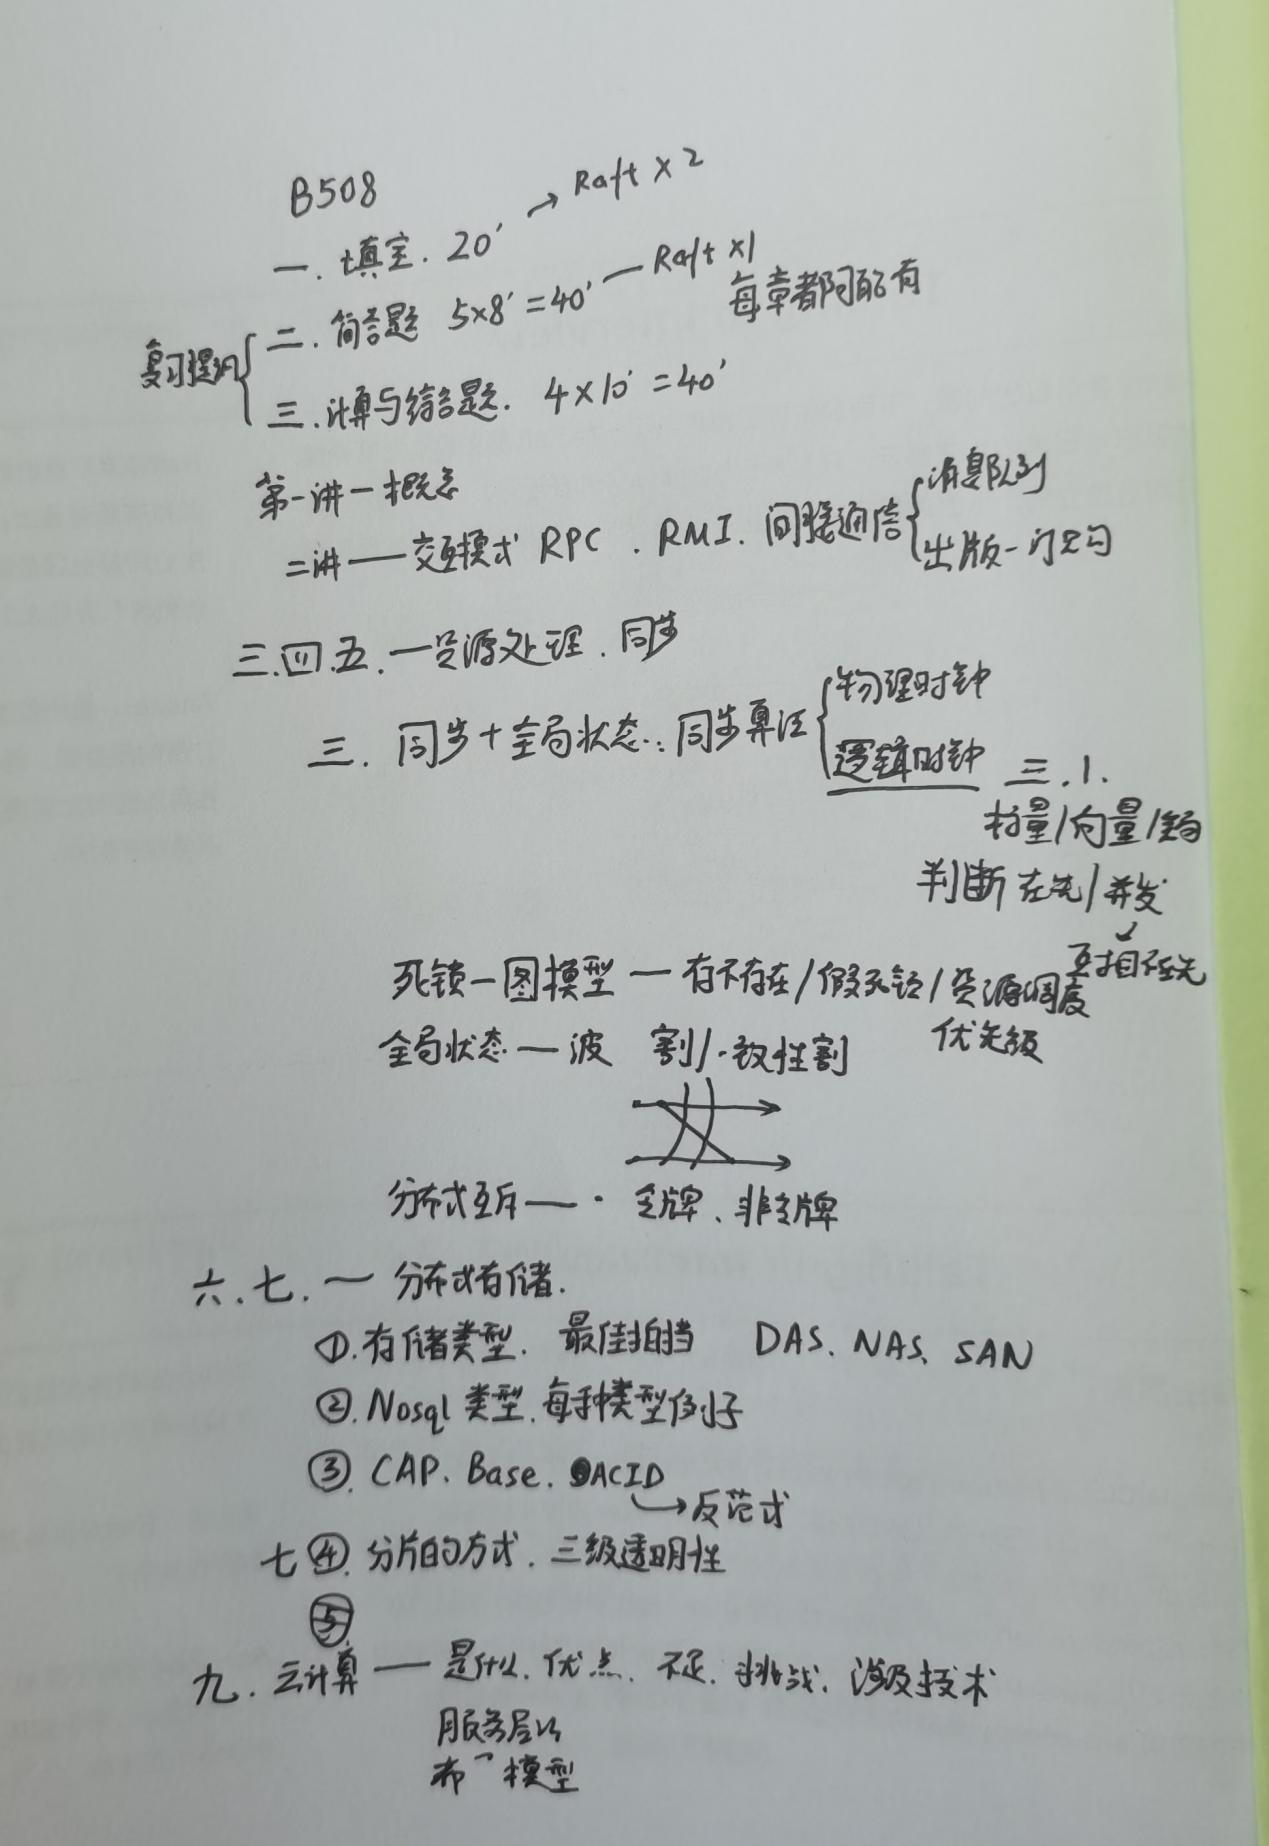 B508
一. 填空. 20' → Raft × 2
二. 简答题 5×8' = 40' — Raft ×1
每章都可能有
复习提纲
三. 计算与综合题. 4×10' = 40'
第一讲 — 概念
二讲 — 交互模式 RPC . RMI. 间接通信 消息队列
出版-订阅
三.四.五. — 资源处理. 同步
三. 同步+全局状态: 同步算法 物理时钟
逻辑时钟 三.1.
标量/向量/矩阵
判断 在先/并发
互相不在先
死锁 — 图模型 — 存不存在/假死锁/资源调度
优先级
全局状态 — 波 割/一致性割
分布式互斥 — 令牌、非令牌
六.七. — 分布式存储.
①. 存储类型. 最佳拍挡 DAS、NAS、SAN
②. Nosql 类型. 每种类型例子
③. CAP. Base. ACID
→ 反范式
七 ④. 分片的方式. 三级透明性
⑤
九. 云计算 — 是什么. 优点. 不足. 挑战. 涉及技术
服务层次
布 模型